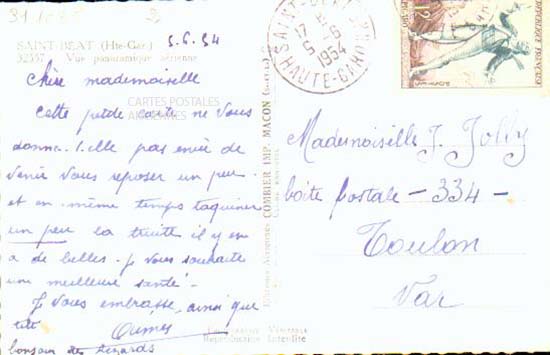 SAINT-BEAT (Hte-Gar.)
5.6.54
32357 Vue panoramique aérienne
Chère mademoiselle
CARTES POSTALES
cette petite carte ne vous
donne. t.elle pas envie de
venir vous reposer un peu
et en même temps taquiner
un peu la truite il y en
a de belles. Je vous souhaite
une meilleure santé.
Je vous embrasse, ainsi que
bonjour des lézards
Reproduction Interdite
COMBIER IMP. MACON
SAINT-BEAT
17
5-6
1954
HAUTE-GARONNE
12
Mademoiselle J. Jolly
boîte postale - 334 -
Toulon
Var